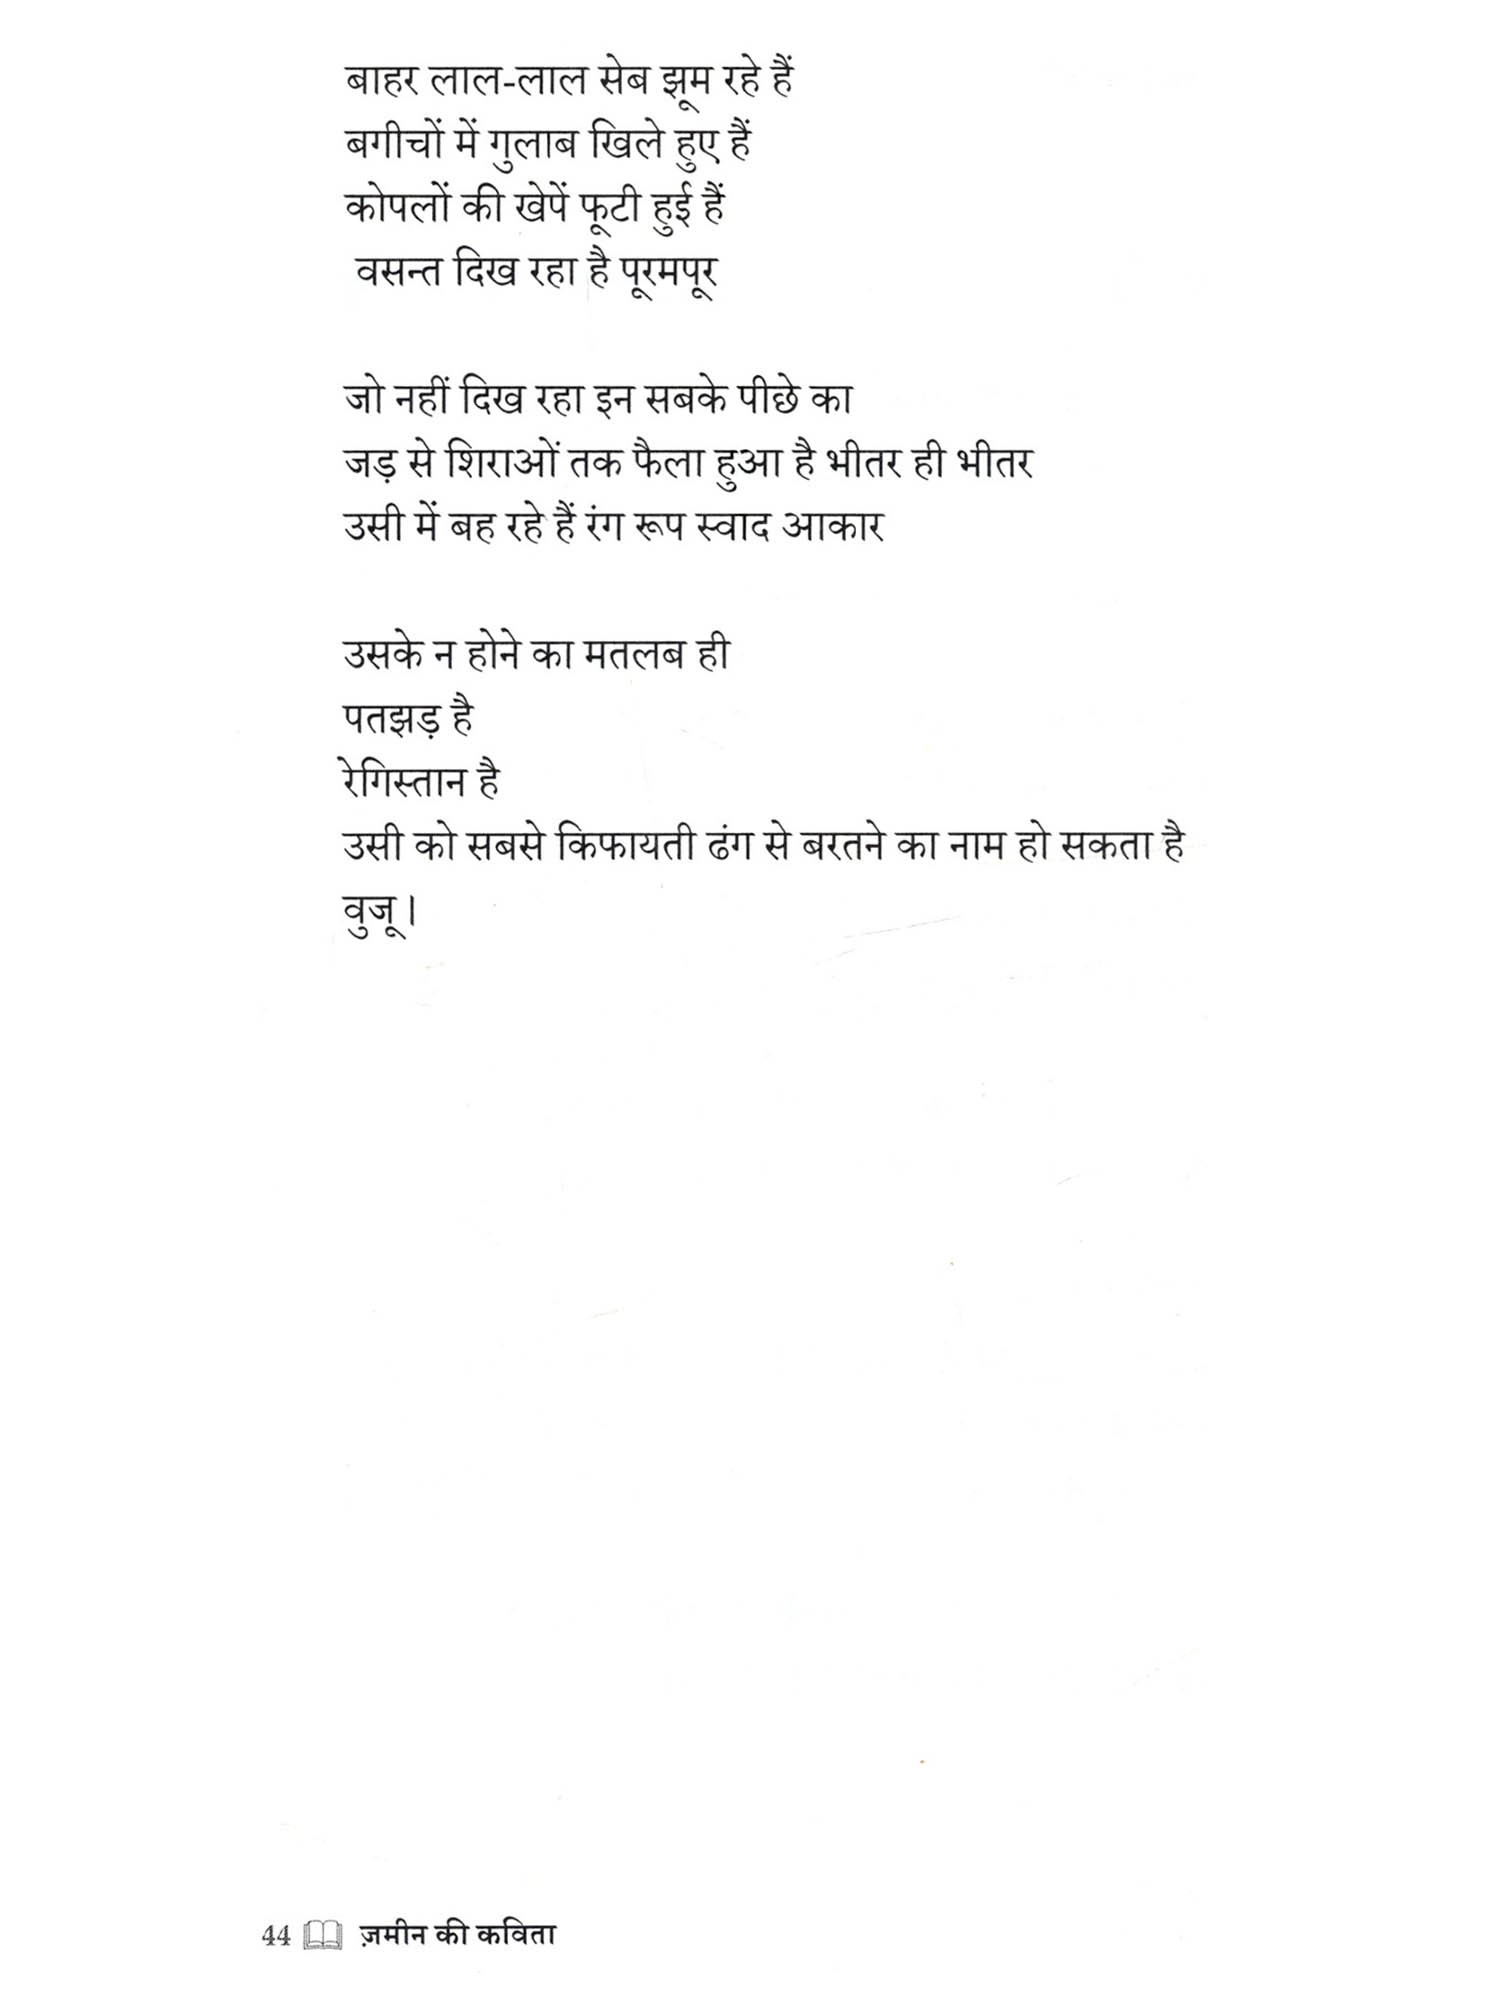 बाहर लाल-लाल सेब झूम रहे हैं
बगीचों में गुलाब खिले हुए हैं
कोपलों की खेपें फूटी हुई हैं
वसन्त दिख रहा है पूरमपूर
जो नहीं दिख रहा इन सबके पीछे का
जड़ से शिराओं तक फैला हुआ है भीतर ही भीतर
उसी में बह रहे हैं रंग रूप स्वाद आकार
उसके न होने का मतलब ही
पतझड़ है
रेगिस्तान है
उसी को सबसे किफायती ढंग से बरतने का नाम हो सकता है
वुजू।
44 ज़मीन की कविता